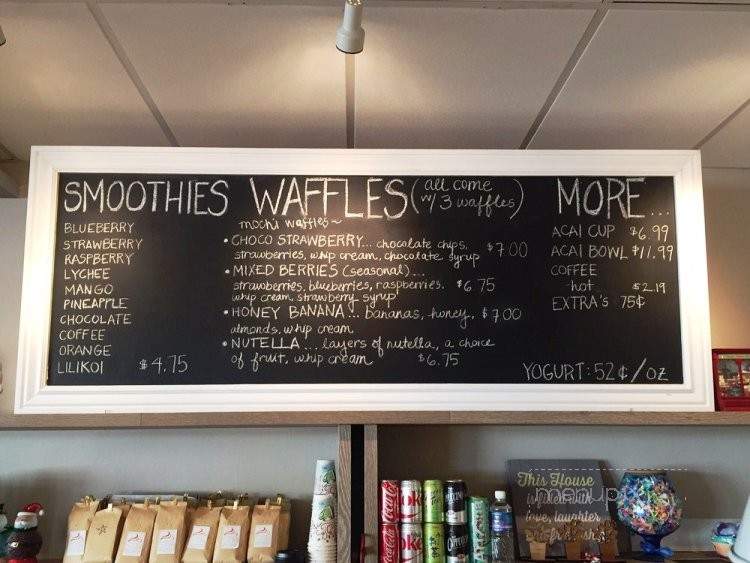 SMOOTHIES
BLUEBERRY
STRAWBERRY
RASPBERRY
LYCHEE
MANGO
PINEAPPLE
CHOCOLATE
COFFEE
ORANGE
LILIKOI $4.75
WAFFLES (all come
w/ 3 waffles)
mochi waffles~
• CHOCO STRAWBERRY... chocolate chips, $7.00
strawberries, whip cream, chocolate syrup
• MIXED BERRIES (seasonal)...
strawberries, blueberries, raspberries. $6.75
whip cream, strawberry syrup
• HONEY BANANA... bananas, honey, $7.00
almonds, whip cream
• NUTELLA... layers of nutella, a choice
of fruit, whip cream $6.75
MORE...
ACAI CUP $6.99
ACAI BOWL $11.99
COFFEE
-hot $2.19
EXTRA'S 75¢
YOGURT: 52¢/OZ
This House
love, laughter
menupix